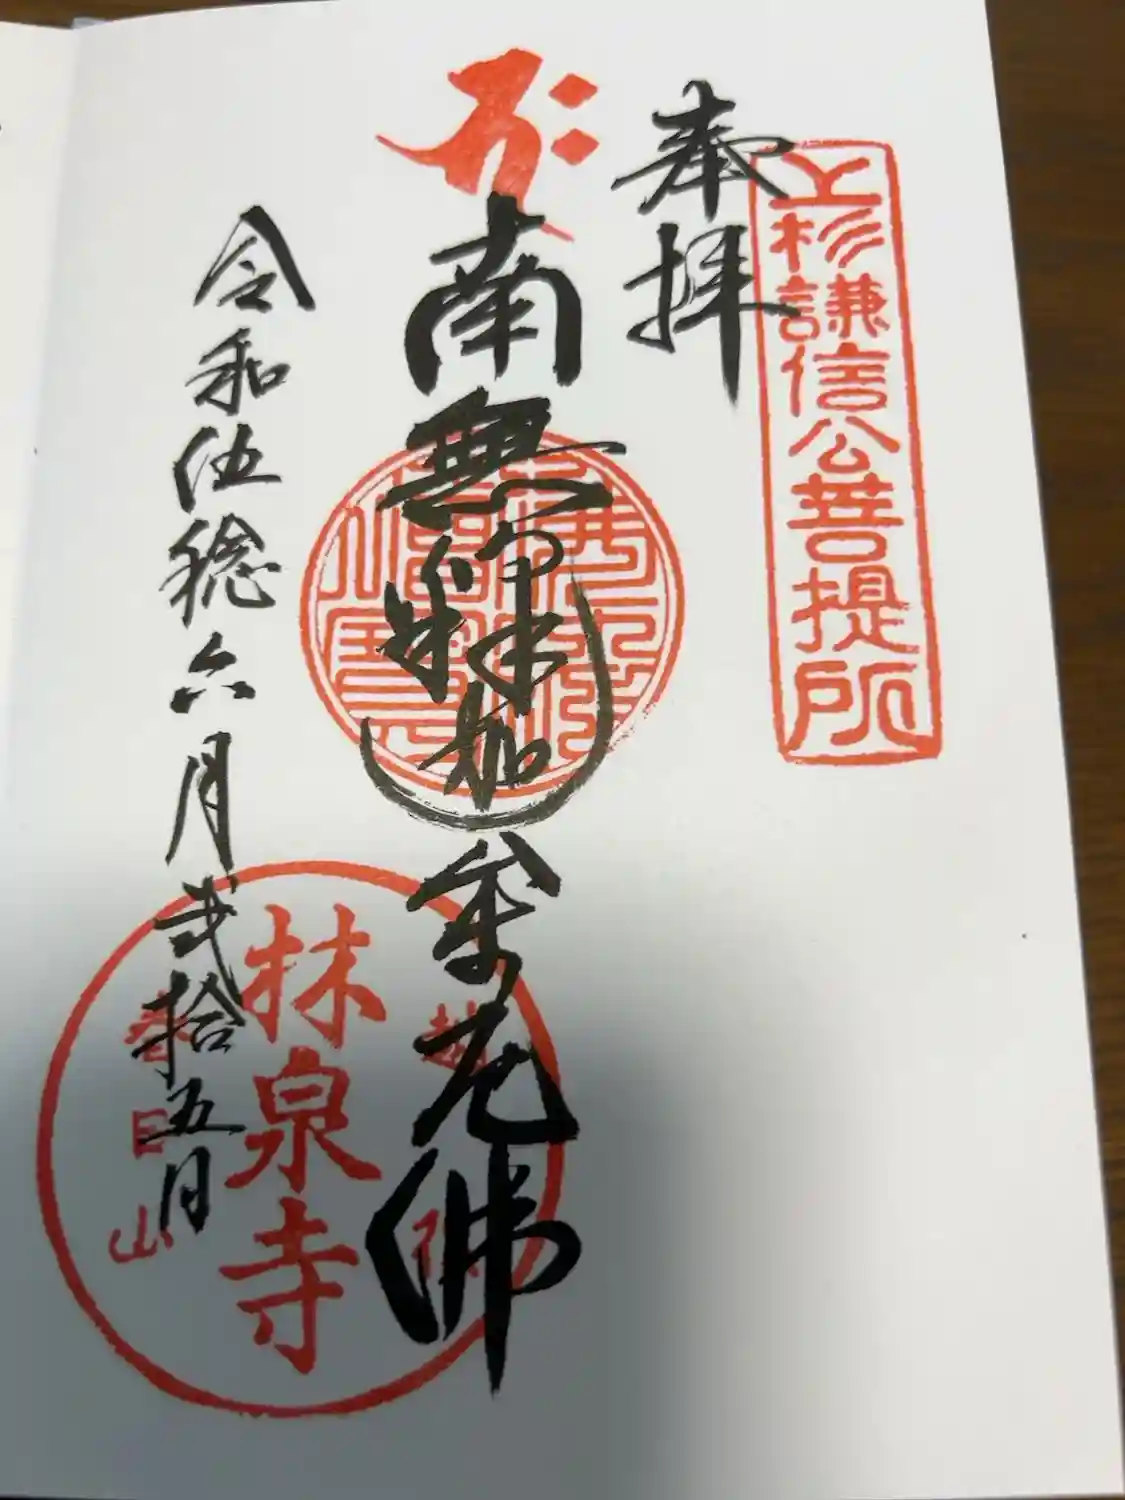 上杉謙信公菩提所
奉拝
南無釈迦牟尼佛
令和伍稔六月弐拾五日
越後
林泉寺
春日山